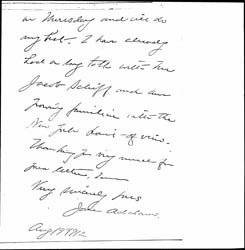 on Thursday and will do
my best. I have already
had a long talk with Mr
Jacob Schiff and am
growing familiar with the
New York point of view.
Thanking you very much for
your letter, I am
Very sincerely yours
Jane Addams.